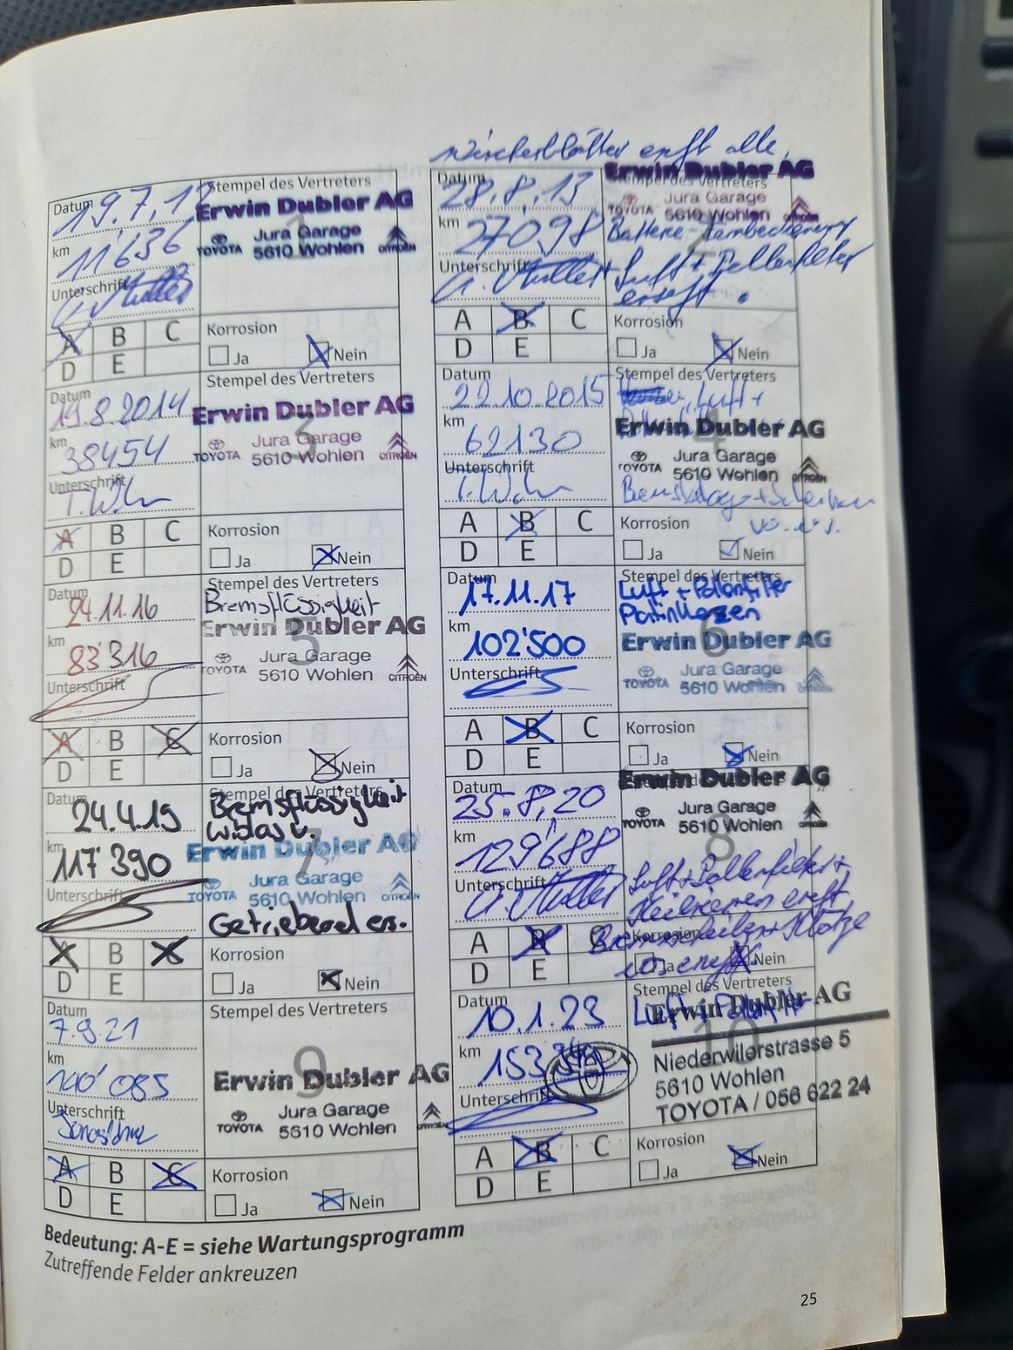 Wischerblätter ers. alle
Datum 19.7.12
Stempel des Vertreters
1
Erwin Dubler AG
Jura Garage
TOYOTA 5610 Wohlen CITROËN
km 11'636
Unterschrift
A B C
D E
Korrosion
Ja Nein
Datum 28.8.13
Stempel des Vertreters
2
Erwin Dubler AG
Jura Garage
TOYOTA 5610 Wohlen CITROËN
km 27098
Batterie-
Unterschrift
Luft + Pollenfilter
ersetzt.
A B C
D E
Korrosion
Ja Nein
Datum 19.8.2014
Stempel des Vertreters
3
Erwin Dubler AG
Jura Garage
TOYOTA 5610 Wohlen CITROËN
km 38454
Unterschrift
A B C
D E
Korrosion
Ja Nein
Datum 22.10.2015
Stempel des Vertreters
Luft +
4
Erwin Dubler AG
Jura Garage
TOYOTA 5610 Wohlen CITROËN
km 62130
Unterschrift
A B C
D E
Korrosion
Ja Nein
Datum 24.11.16
Stempel des Vertreters
Bremsflüssigkeit
5
Erwin Dubler AG
Jura Garage
TOYOTA 5610 Wohlen CITROËN
km 83'316
Unterschrift
A B C
D E
Korrosion
Ja Nein
Datum 17.11.17
Stempel des Vertreters
Luft + Pollenfilter
6
Erwin Dubler AG
Jura Garage
TOYOTA 5610 Wohlen CITROËN
km 102'500
Unterschrift
A B C
D E
Korrosion
Ja Nein
Datum 24.4.19
Stempel des Vertreters
Bremsflüssigkeit
7
Erwin Dubler AG
Jura Garage
TOYOTA 5610 Wohlen CITROËN
km 117'390
Getriebeoel ers.
Unterschrift
A B C
D E
Korrosion
Ja Nein
Datum 25.8.20
8
Erwin Dubler AG
Jura Garage
TOYOTA 5610 Wohlen CITROËN
km 129'688
Luft + Pollenfilter +
Keilriemen ers.
Unterschrift
Bremsscheiben + Klötze
A B C
D E
Korrosion
Ja Nein
Datum 7.9.21
Stempel des Vertreters
9
Erwin Dubler AG
Jura Garage
TOYOTA 5610 Wohlen CITROËN
km 140'085
Unterschrift
A B C
D E
Korrosion
Ja Nein
Datum 10.1.23
Stempel des Vertreters
Luft + Pollenfilter
10
Erwin Dubler AG
Niederwilerstrasse 5
5610 Wohlen
TOYOTA / 056 622 24
km
Unterschrift
A B C
D E
Korrosion
Ja Nein
Bedeutung: A-E = siehe Wartungsprogramm
Zutreffende Felder ankreuzen
25